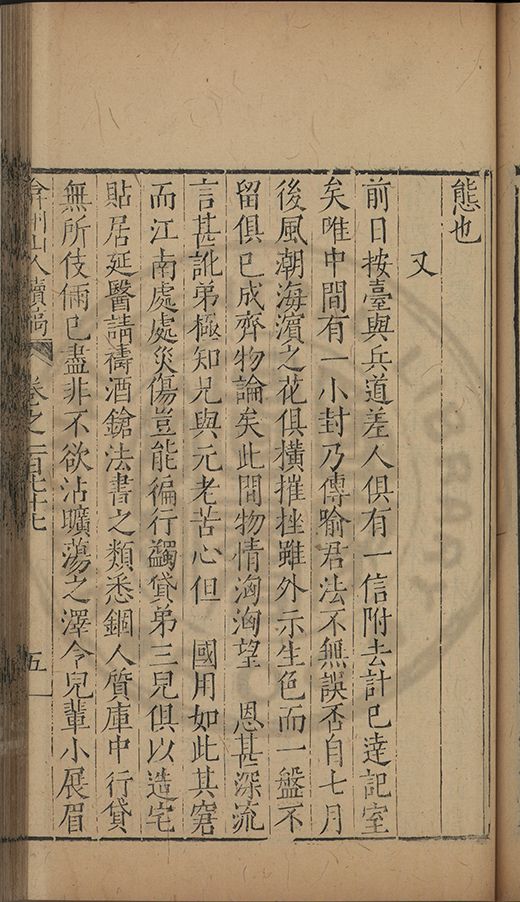 態也
又
前日按臺與兵道差人俱有一信附去計已達記室
矣唯中間有一小封乃傳喻君法不無誤否自七月
後風潮海濵之花俱橫摧挫雖外示生色而一盤不
留俱已成齊物論矣此間物情洶洶望　恩甚深流
言甚訛弟極知兄與元老苦心但　國用如此其窘
而江南處處災傷豈能徧行蠲貸弟三兒俱以造宅
貼居延醫請禱酒鎗法書之類悉錮人質庫中行貸
無所伎倆已盡非不欲沾曠蕩之澤令兒輩小展眉
弇州山人續稿 卷之一百七十七 五